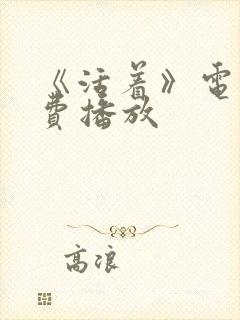 《活着》电
费播放
高浪